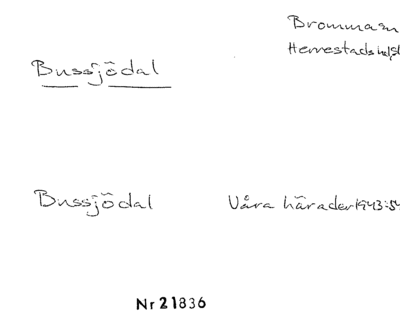 Bromma sn
Herrestads hd, Sk
Bussjödal
Bussjödal Våra härader 1943:54
Nr 21836